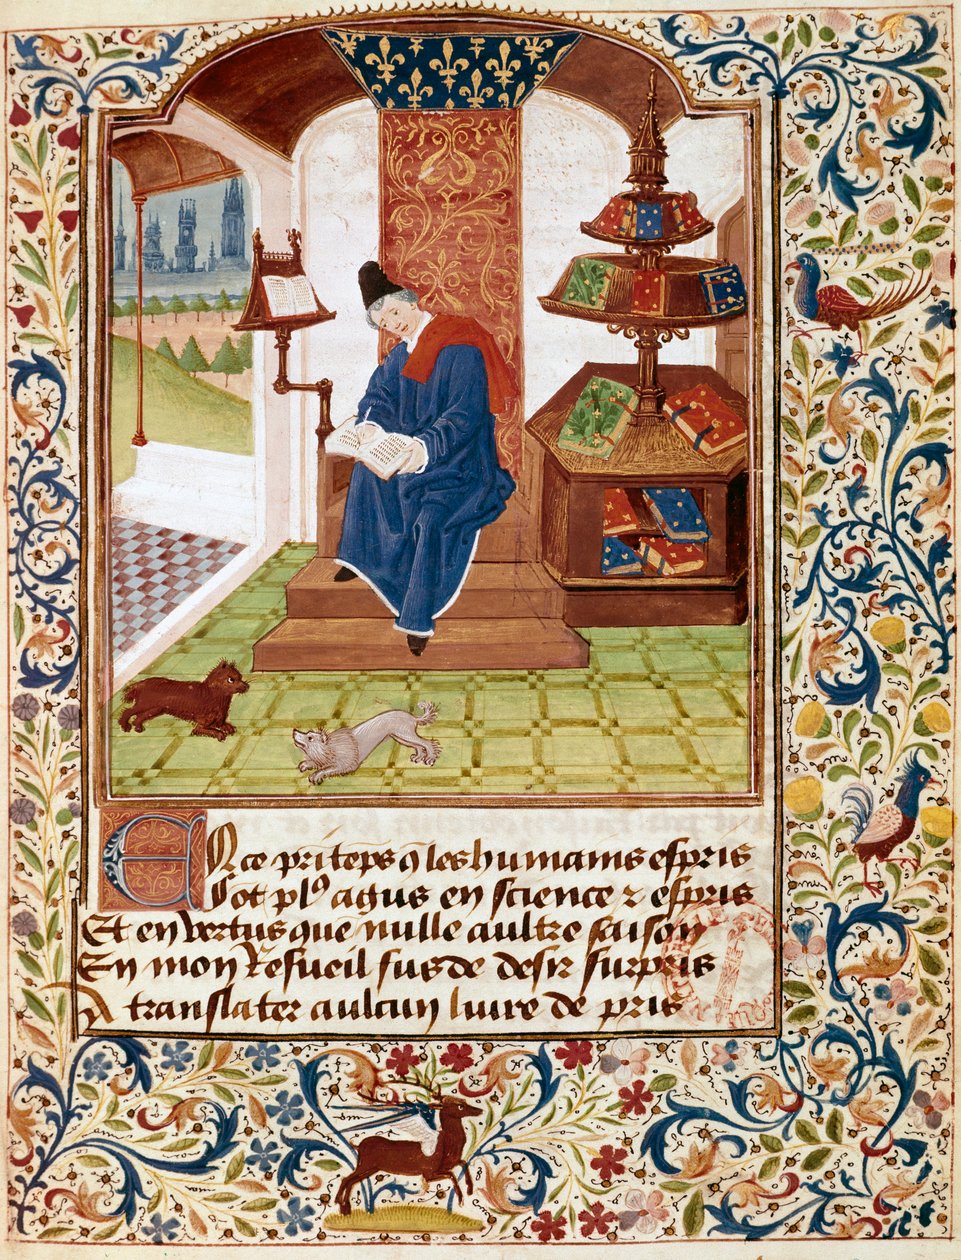 En ce priteps q les humains espris
Sot plꝰ agus en science ⁊ espris
Et en vertus que nulle aultre saison
En mon Resueil sus de desir surpris
A translater aulcun liure de pris